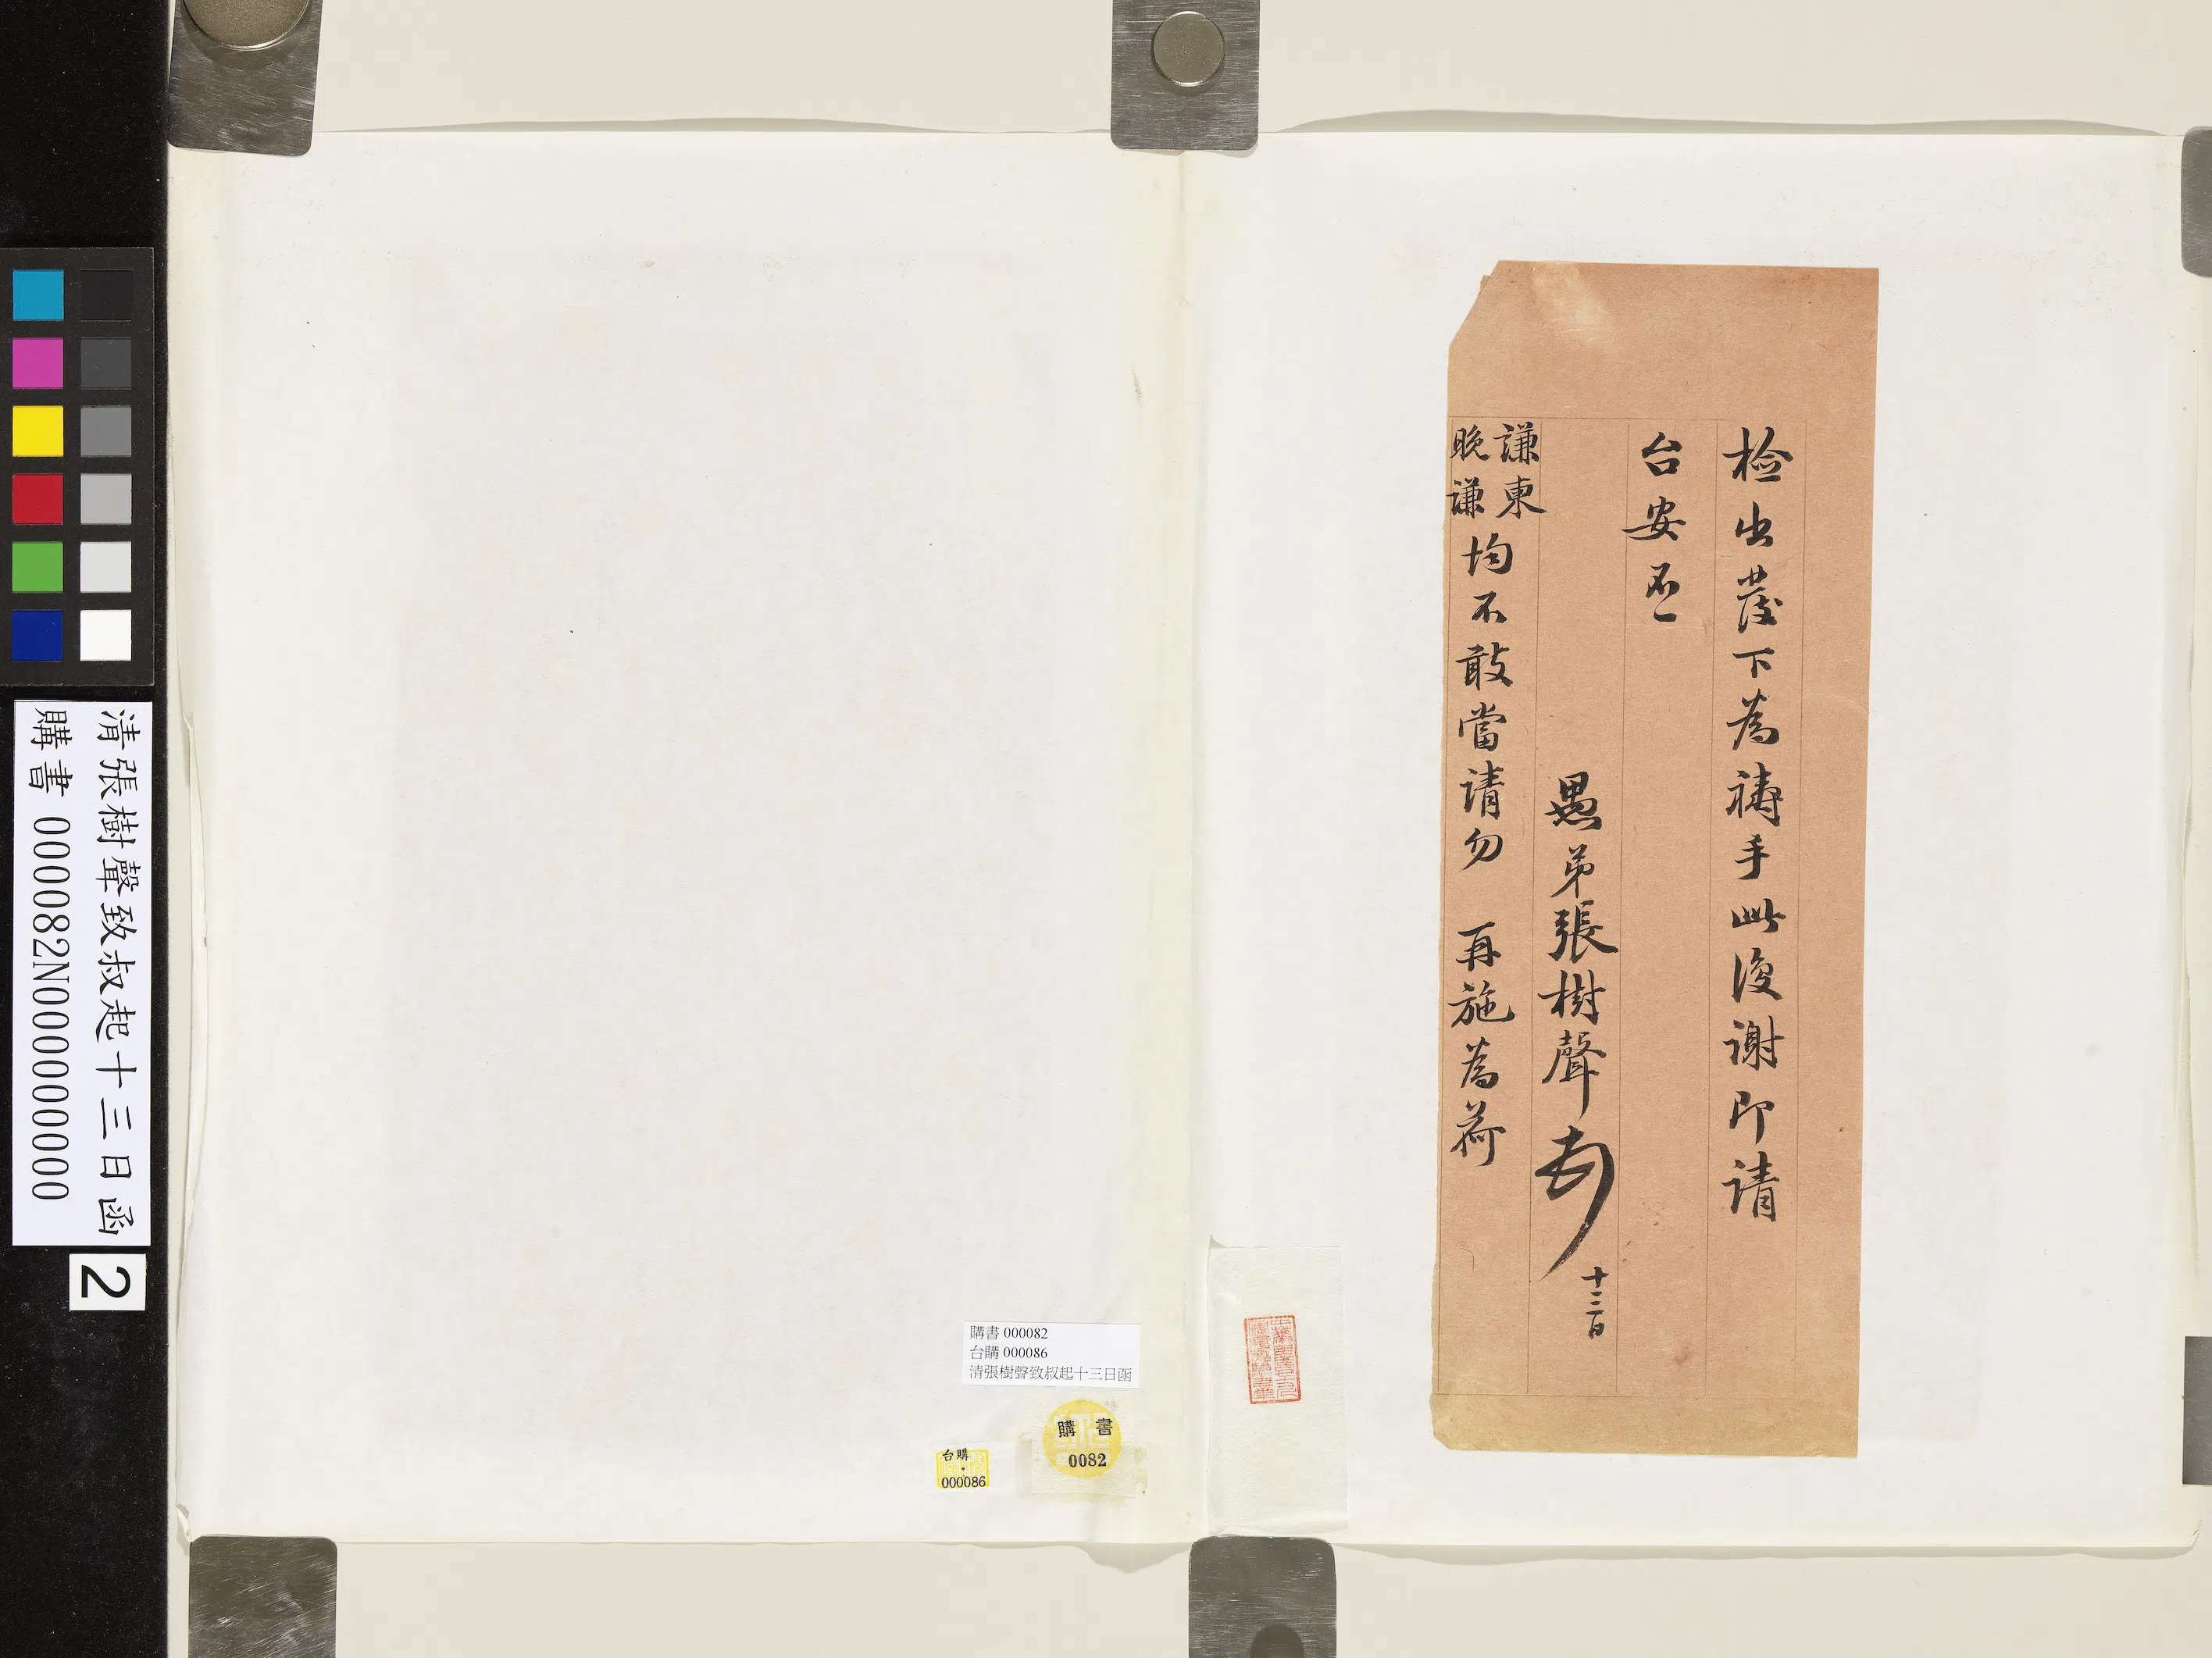 检出发下為禱手此復謝即请
台安不一
愚弟張樹聲
十三日
謙柬
晚謙
均不敢當请勿 再施為荷
購書 000082
台購 000086
清張樹聲致叔起十三日函
購 書
0082
台購
000086
清張樹聲致叔起十三日函
購書 000082N000000000
2